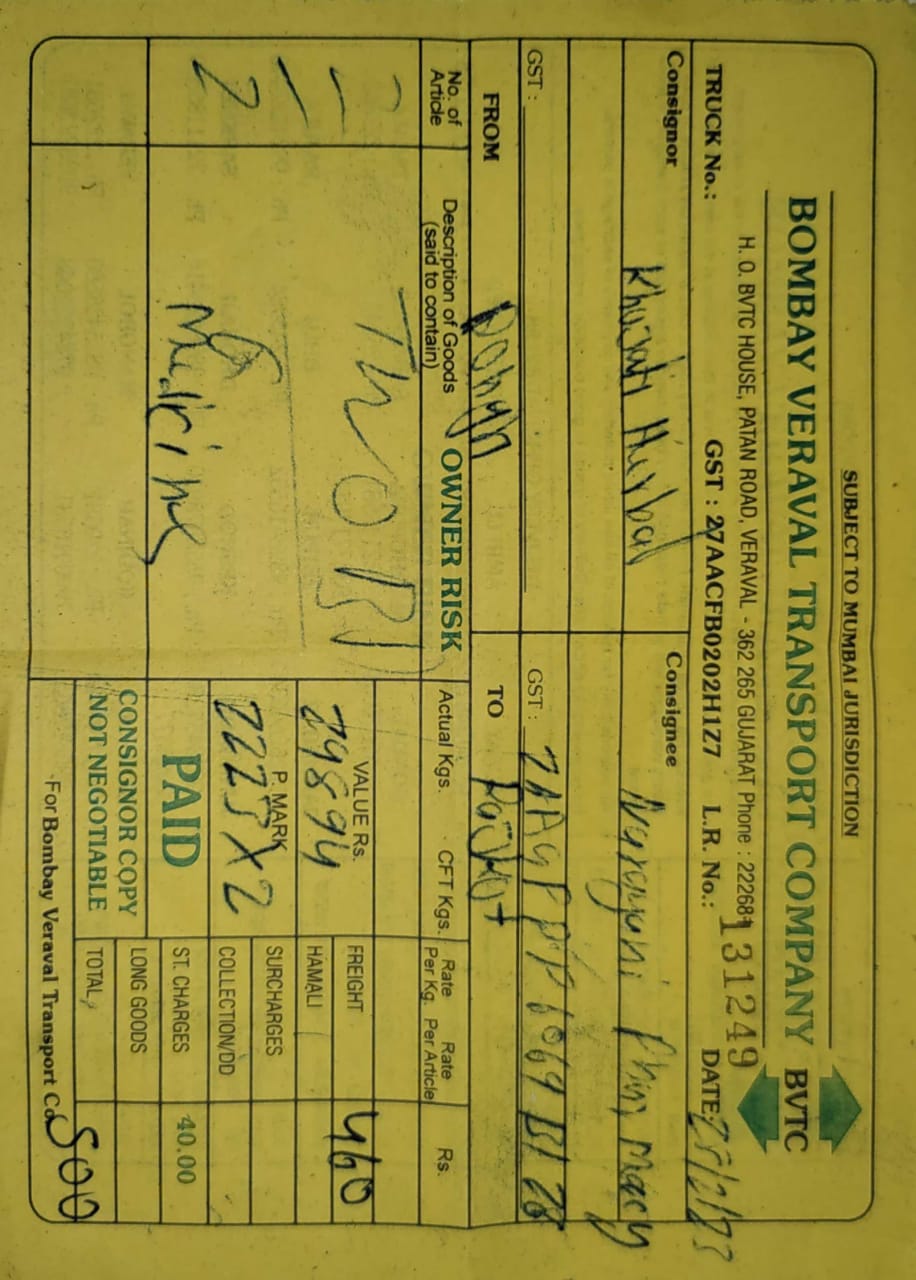 SUBJECT TO MUMBAI JURISDICTION
BOMBAY VERAVAL TRANSPORT COMPANY BVTC
H. O. BVTC HOUSE, PATAN ROAD, VERAVAL - 362 265 GUJARAT Phone : 222681
TRUCK No.: GST : 27AACFB0202H1Z7 L.R. No.: 131249 DATE:
Consignor Herbal
Consignee
GST : GST :
FROM TO Rajkot
No. of Article Description of Goods (said to contain) OWNER RISK Actual Kgs. CFT Kgs. Rate Per Kg. Rate Per Article Rs.
TWO
VALUE Rs. FREIGHT 460
29894 HAMALI
P. MARK SURCHARGES
2225 X 2 COLLECTION/DD
2 Medicine PAID ST. CHARGES 40.00
CONSIGNOR COPY LONG GOODS
NOT NEGOTIABLE TOTAL 500
For Bombay Veraval Transport Co.